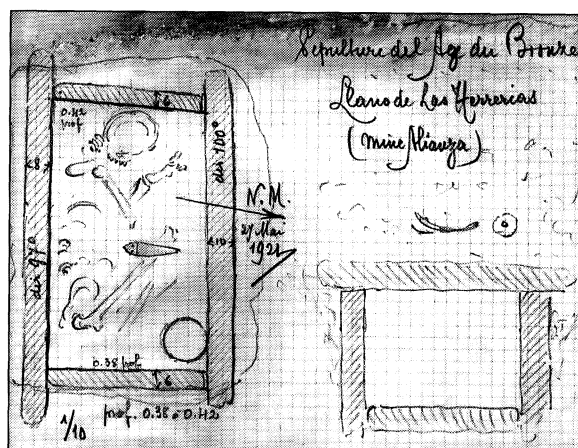 Sepulture del Age du Bronze
Llano de Las Herrerias
(mine Alianza)
6
0.42
prof
8
dir 100°
N.M.
27 Mai
1921
10
0.38 prof
6
1/10
prof. 0.38 à 0.42